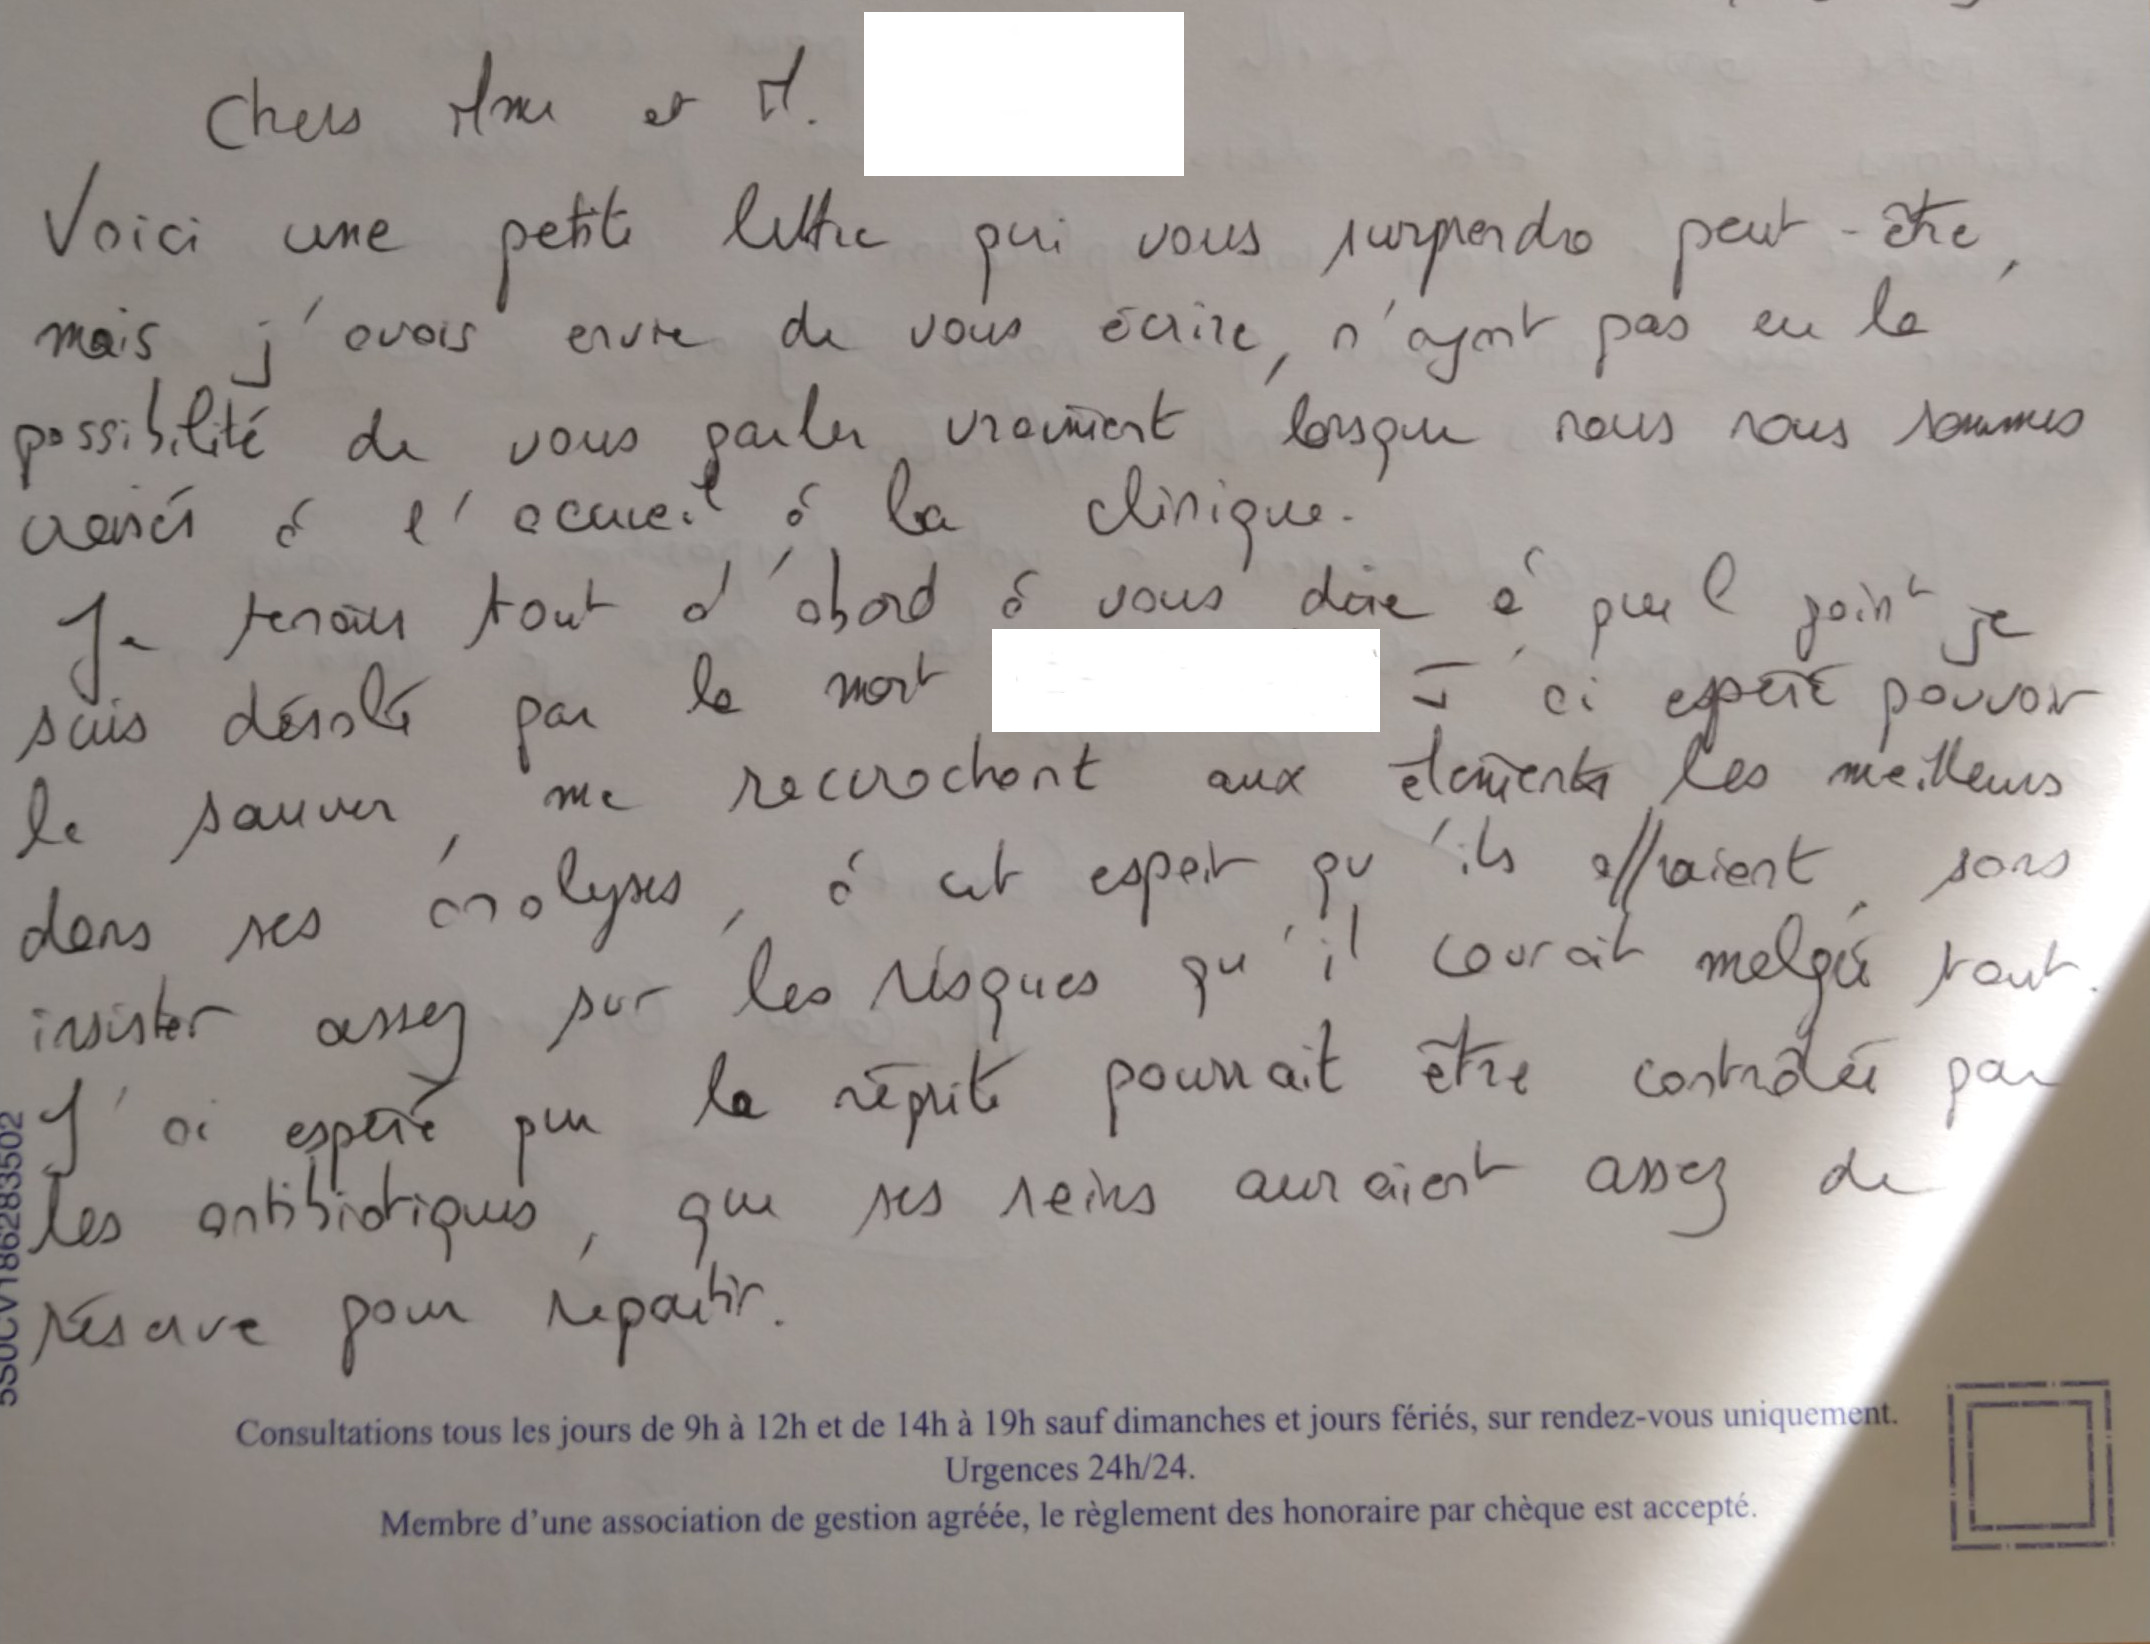 Chers Mme et M.
Voici une petite lettre qui vous surprendra peut-être,
mais j'avais envie de vous écrire, n'ayant pas eu la
possibilité de vous parler vraiment lorsque nous nous sommes
croisés à l'accueil à la clinique.
Je tenais tout d'abord à vous dire à quel point je
suis désolé par la mort J'ai espéré pouvoir
le sauver, me raccrochant aux éléments les meilleurs
dans ses analyses, à cet espoir qu'ils offraient, sans
insister assez sur les risques qu'il courait malgré tout.
J'ai espéré que la néphrite pourrait être contrôlée par
les antibiotiques, que ses reins auraient assez de
réserve pour repartir.
5S0CV186283502
Consultations tous les jours de 9h à 12h et de 14h à 19h sauf dimanches et jours fériés, sur rendez-vous uniquement.
Urgences 24h/24.
Membre d'une association de gestion agréée, le règlement des honoraire par chèque est accepté.